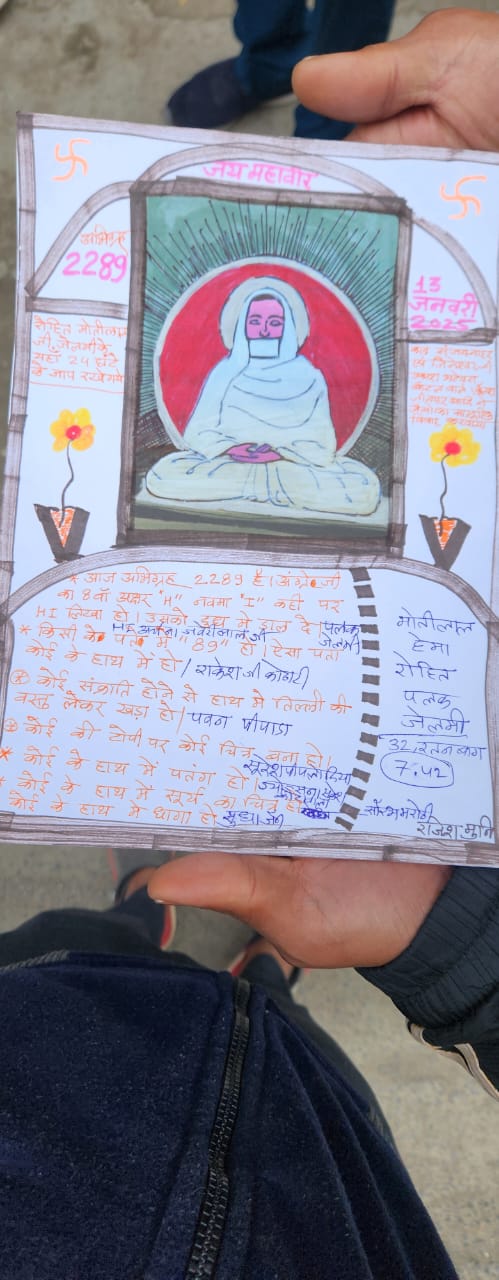 जय महावीर
अभिग्रह
2289
13
जनवरी
2025
रोहित मोतीलाल
जी जेलमी के
यहाँ 24 घंटे
के जाप रखेगये
* आज अभिग्रह 2289 है। अंग्रेजी
का 8वाँ अक्षर "H" नवमा "I" कही पर
HI लिखा हो। उसको दूध में डाल दे। पलक जेलमी
* किसी के पता में "89" हो। ऐसा पता
कोई के हाथ में हो / राकेश जी कोठारी
* कोई संक्रांति होने से हाथ में तिल्ली की
वस्तु लेकर खड़ा हो। पवन पीपाडा
* कोई की टोपी पर कोई चित्र बना हो।
* कोई के हाथ में पतंग हो।
* कोई के हाथ में सूर्य का चित्र हो
कोई के हाथ में धागा हो सुधा जैन
मोतीलाल
हेमा
रोहित
पलक
जेलमी
32, रतनबाग
7.42
राजेश मुनि